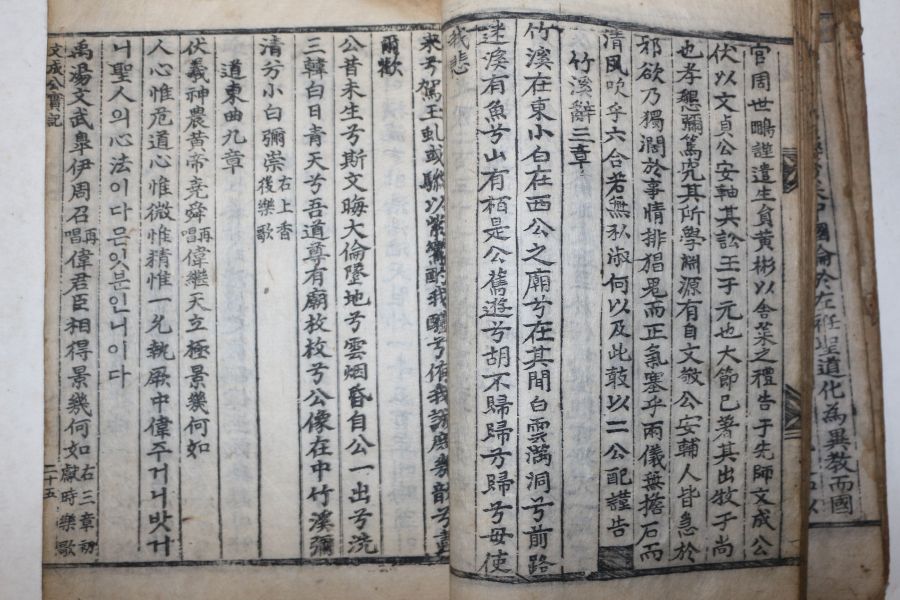 聖道化為異教而國
官周世鵬謹遣生員黃彬以舍菜之禮告于先師文成公
伏以文貞公安軸其訟王于元也大節已著其出牧于尚
也孝懇彌篤究其所學淵源有自文敬公安輔人皆急於
邪欲乃獨濶於事情排猖鬼而正氣塞乎兩儀無擔石而
清風吹乎六合若無私淑何以及此敢以二公配謹告
竹溪辭三章
竹溪在東小白在西公之廟兮在其間白雲滿洞兮前路
迷溪有魚兮山有栢是公舊遊兮胡不歸歸兮歸兮毋使
我悲
來兮駕玉虬或驂以紫鸞酌我醴兮侑我誠庶幾歆兮盡
爾歡
公昔未生兮斯文晦大倫墜地兮雲烟昏自公一出兮洗
三韓白日青天兮吾道尊有廟枚枚兮公像在中竹溪彌
清兮小白彌崇右上香後樂歌
道東曲九章
伏羲神農黃帝堯舜再唱偉繼天立極景幾何如
人心惟危道心惟微惟精惟一允執厥中偉주거니밧거
니聖人의心法이다믄잇분인니이다
禹湯文武皐伊周召再唱偉君臣相得景幾何如右三章初獻時樂歌
文成公實記 二十五